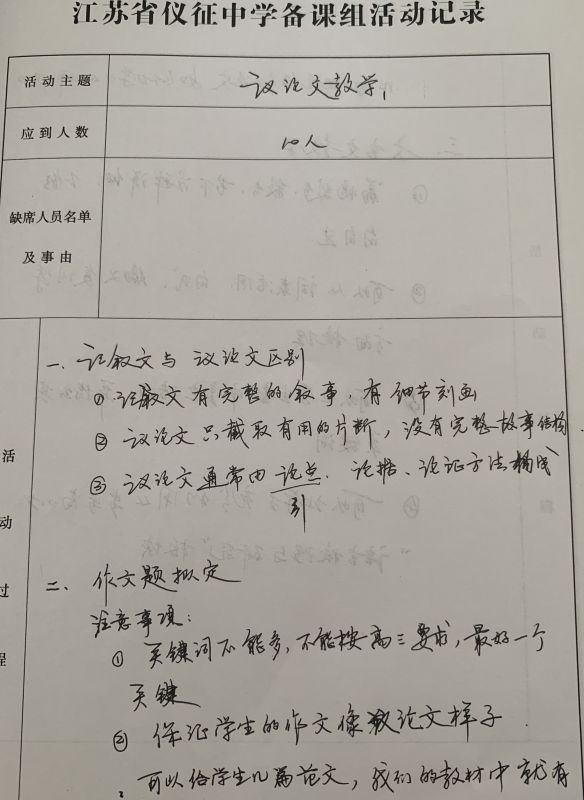 江苏省仪征中学备课组活动记录
活动主题 议论文教学
应到人数 10人
缺席人员名单
及事由
一、记叙文与议论文区别
① 记叙文有完整的叙事，有细节刻画
② 议论文只截取有用的片断，没有完整故事结构
③ 议论文通常由论点、论据、论证方法构成
引
活
动
过
程
二、作文题拟定
注意事项：
① 关键词不能多，不能按高三要求，最好一个
关键
② 保证学生的作文像议论文样子
可以给学生几篇范文，我们的教材中就有